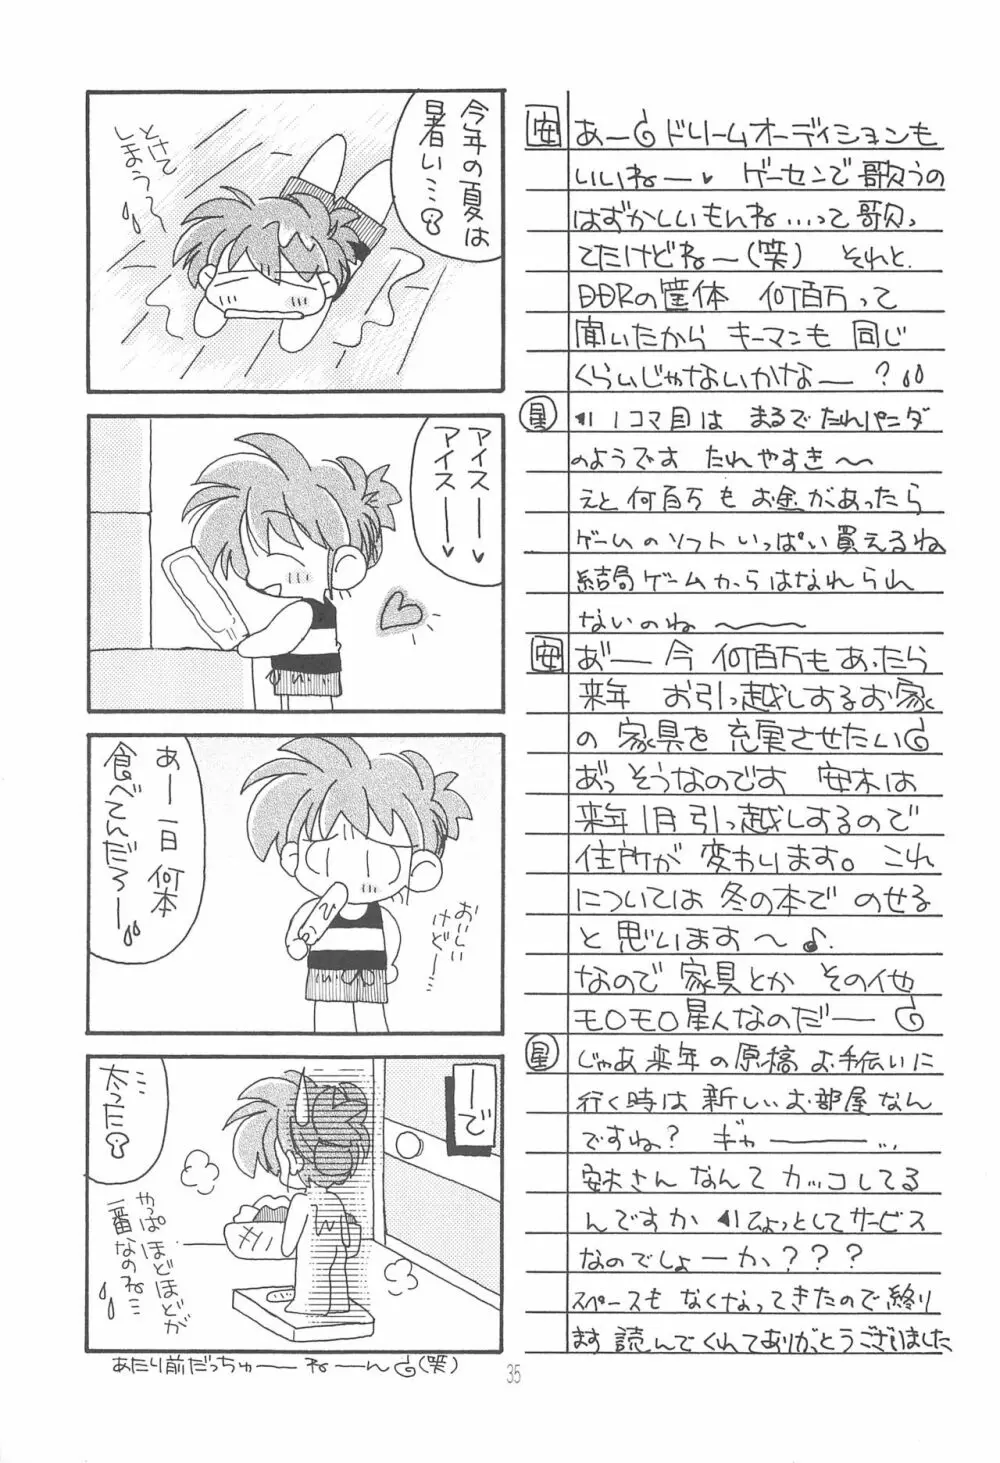 今年の夏は
暑い…
とけて
しまう〜
アイスー♥
アイスー♥
あー一日何本
食べてんだろー
おいしい
けどー…
ーで
…太った
やっぱほどほどが
一番なのね…
あたり前だっちゅーーねーーん(笑)
安 あードリームオーディションも
いいねー♥ ゲーセンで歌うの
はずかしいもんね…って歌っ
てたけどねー(笑) それと
DDRの筐体 何百万って
聞いたから キーマンも 同じ
くらいじゃないかなー ?
星 ◀1コマ目は まるでたれパンダ
のようです たれやすき〜
えと何百万もお金があったら
ゲームのソフトいっぱい買えるね
結局ゲームからはなれられ
ないのね 〜
安 あ゛ー今 何百万もあったら
来年 お引っ越しするお家
の 家具を 充実させたい
あ゛っそうなのです 安木は
来年1月引っ越しするので
住所が 変わります。これ
については冬の本で のせる
と思います〜♪.
なので 家具とか その他
モロモロ星人なのだー
星 じゃあ来年の原稿お手伝いに
行く時は 新しいお部屋なん
ですね? ギャー…
安木さん なんて カッコしてる
んですか ◀ひょっとしてサービス
なのでしょーか???
スペースも なくなってきたので終り
ます 読んでくれてありがとうございました
35